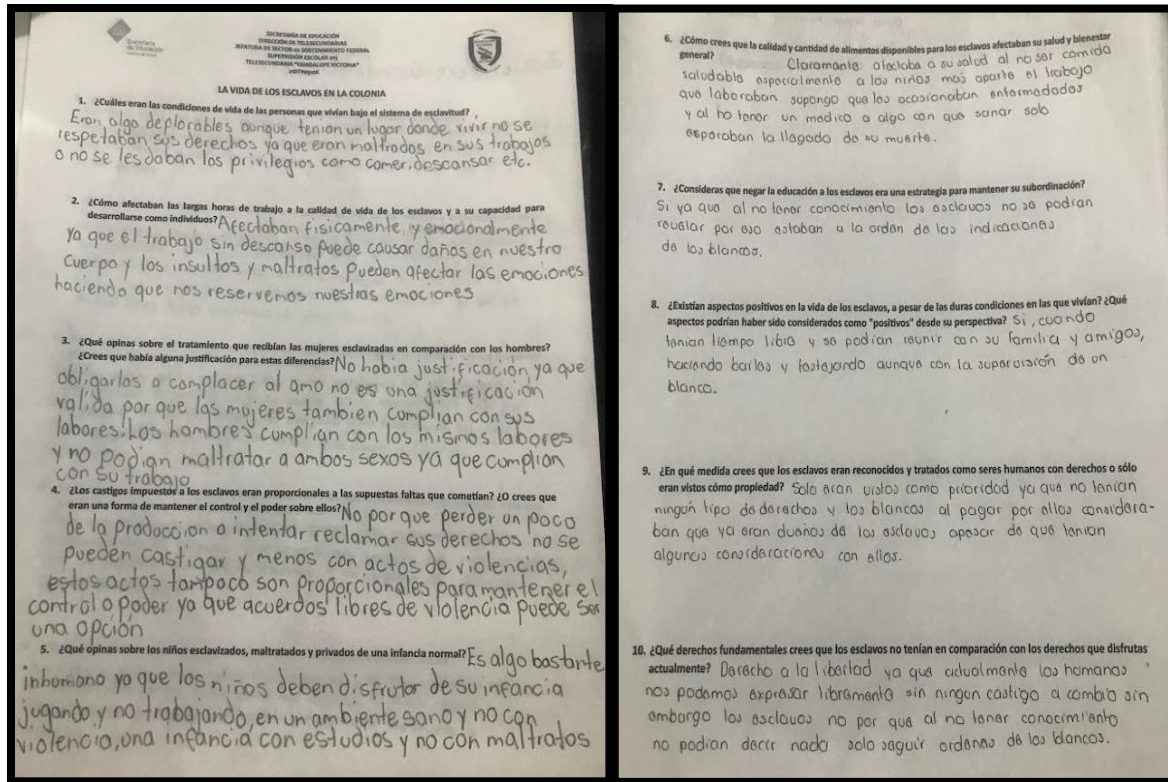 Secretaría
de Educación
SECRETARÍA DE EDUCACIÓN
DIRECCIÓN DE TELESECUNDARIAS
JEFATURA DE SECTOR 01 SOSTENIMIENTO FEDERAL
SUPERVISIÓN ESCOLAR
TELESECUNDARIA "GUADALUPE VICTORIA"
LA VIDA DE LOS ESCLAVOS EN LA COLONIA
1. ¿Cuáles eran las condiciones de vida de las personas que vivían bajo el sistema de esclavitud?
Eran algo deplorables aunque tenian un lugar donde vivir no se
respetaban sus derechos ya que eran maltrados en sus trabajos
o no se les daban los privilegios como comer, descansar etc.
2. ¿Cómo afectaban las largas horas de trabajo a la calidad de vida de los esclavos y a su capacidad para
desarrollarse como individuos? Afectaban fisicamente y emocionalmente
ya que el trabajo sin descanso puede causar daños en nuestro
cuerpo y los insultos y maltratos pueden afectar las emociones
haciendo que nos reservemos nuestras emociones
3. ¿Qué opinas sobre el tratamiento que recibían las mujeres esclavizadas en comparación con los hombres?
¿Crees que había alguna justificación para estas diferencias? No habia justificación ya que
obligarlas a complacer al amo no es una justificación
valida por que las mujeres tambien complian con sus
labores. Los hombres cumplian con los mismos labores
y no podian maltratar a ambos sexos ya que cumplian
con su trabajo
4. ¿Los castigos impuestos a los esclavos eran proporcionales a las supuestas faltas que cometían? ¿O crees que
eran una forma de mantener el control y el poder sobre ellos? No por que perder un poco
de la produccion o intentar reclamar sus derechos no se
pueden castigar y menos con actos de violencias,
estos actos tampoco son proporcionales para mantener el
control o poder ya que acuerdos libres de violencia puede ser
una opción
5. ¿Qué opinas sobre los niños esclavizados, maltratados y privados de una infancia normal? Es algo bastante
inhomano ya que los niños deben disfrutar de su infancia
jugando y no trabajando, en un ambiente sano y no con
violencia, una infancia con estudios y no con maltratos
6. ¿Cómo crees que la calidad y cantidad de alimentos disponibles para los esclavos afectaban su salud y bienestar
general? Claramente afectaba a su salud al no ser comida
saludable especialmente a los niños mas aparte el trabajo
que laboraban supongo que les ocasionaban enfermedades
y al no tener un medico o algo con que sanar solo
esperaban la llegada de su muerte.
7. ¿Consideras que negar la educación a los esclavos era una estrategia para mantener su subordinación?
Si ya que al no tener conocimiento los esclavos no se podian
revelar por eso estaban a la orden de las indicaciones
de los blancos.
8. ¿Existían aspectos positivos en la vida de los esclavos, a pesar de las duras condiciones en las que vivían? ¿Qué
aspectos podrían haber sido considerados como "positivos" desde su perspectiva? Si, cuando
tenian tiempo libre y se podian reunir con su familia y amigos,
haciendo bailes y festejando aunque con la supervisión de un
blanco.
9. ¿En qué medida crees que los esclavos eran reconocidos y tratados como seres humanos con derechos o sólo
eran vistos cómo propiedad? Solo eran vistos como prioridad ya que no tenian
ningún tipo de derechos y los blancos al pagar por ellos considera-
ban que ya eran dueños de los esclavos apesar de que tenian
algunas consideraciones con ellos.
10. ¿Qué derechos fundamentales crees que los esclavos no tenían en comparación con los derechos que disfrutas
actualmente? Derecho a la libertad ya que actualmente los humanos
nos podemos expresar libremente sin ningun castigo a cambio sin
embargo los esclavos no por que al no tener conocimiento
no podian decir nada solo seguir ordenes de los blancos.